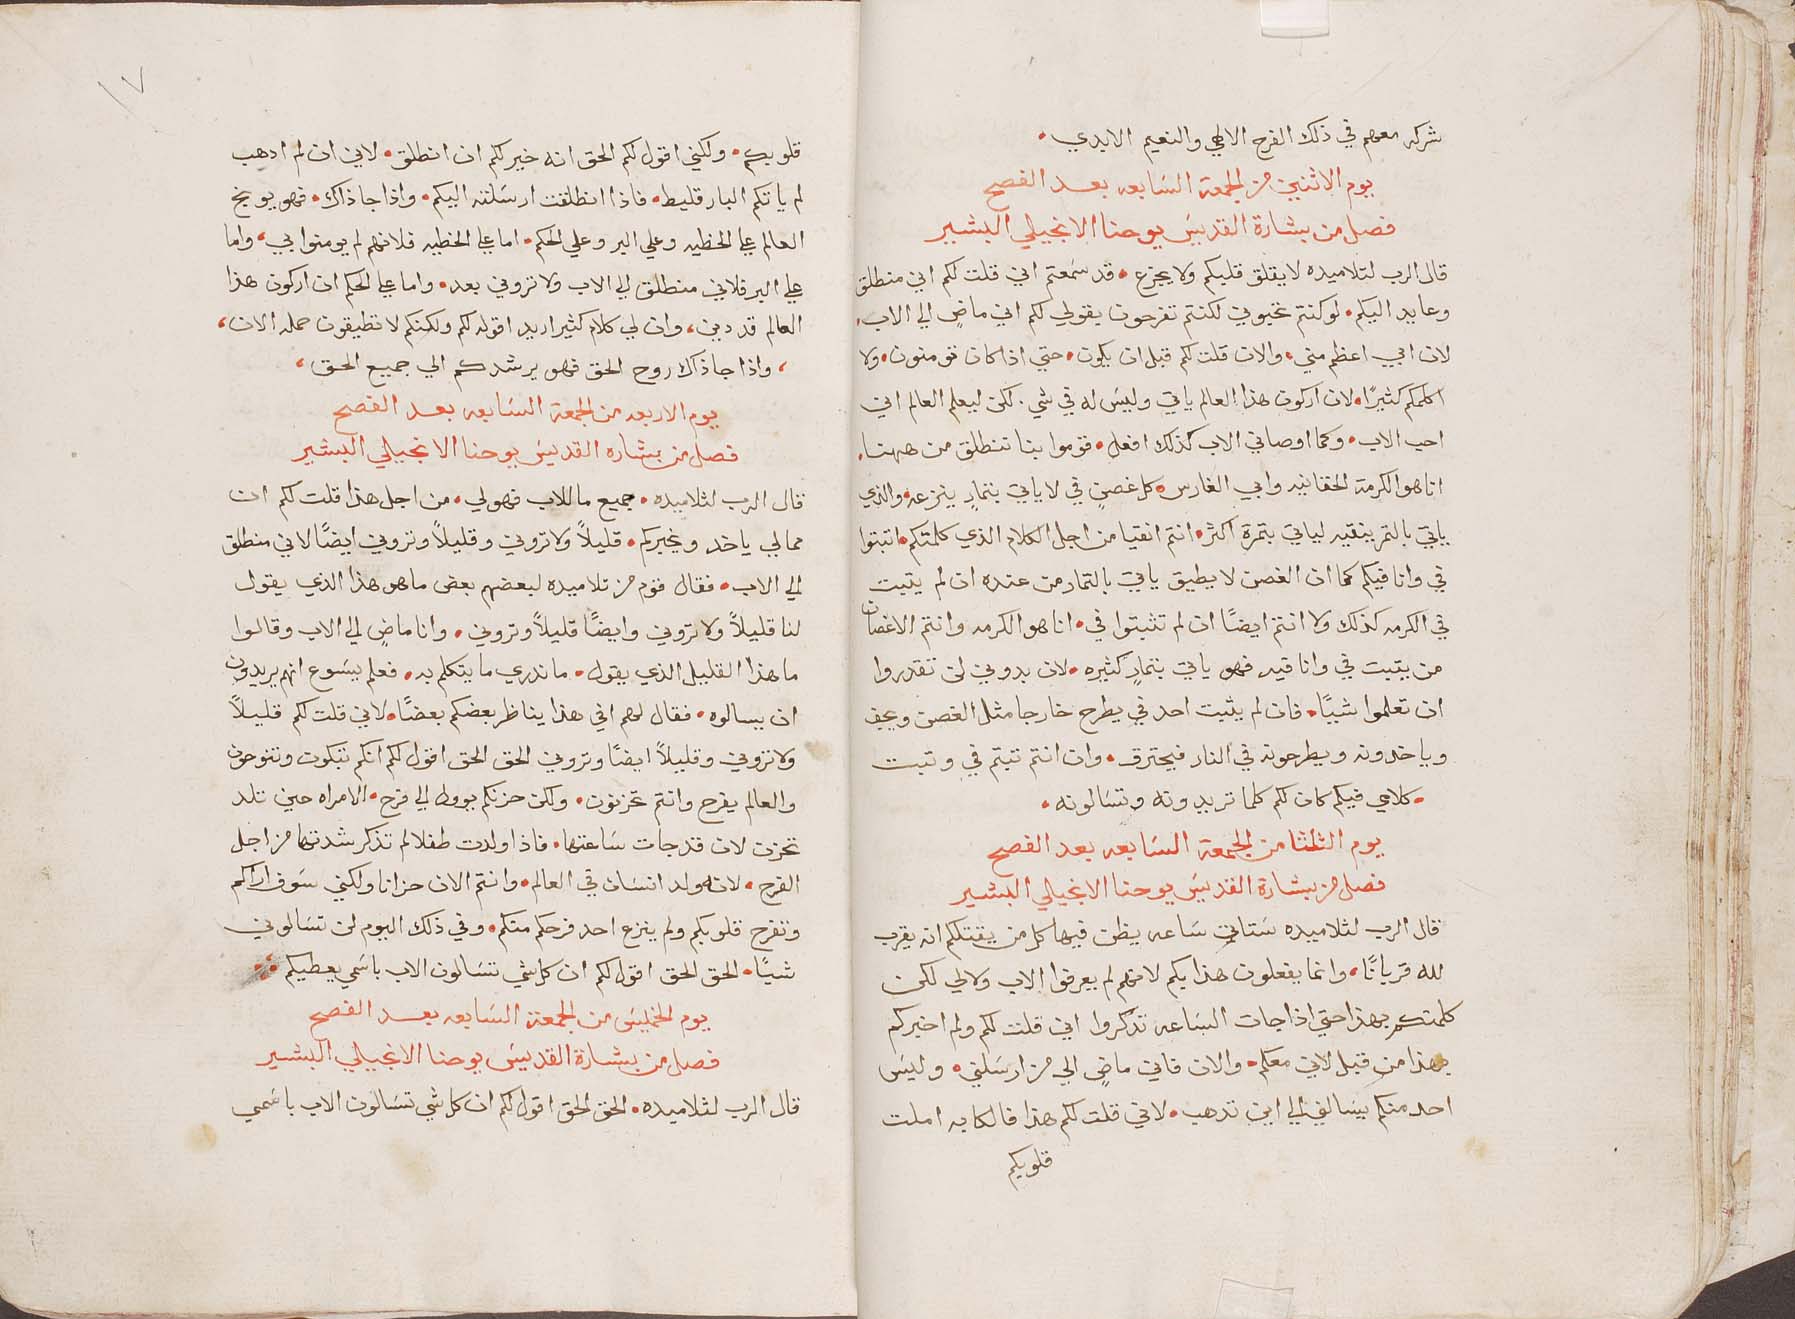 شركه معهم في ذلك الفرح الالهي والنعيم الابدي •
يوم الاثنين من الجمعة السابعه بعد الفصح
فصل من بشارة القديس يوحنا الانجيلي البشير
قال الرب لتلاميده لا يقلق قلبكم ولا يجزع • قد سمعتم اني قلت لكم اني منطلق
وعايد اليكم • لو كنتم تحبوني لكنتم تفرحون بقولي لكم اني ماضٍ الي الاب •
لان ابي اعظم مني • والان قلت لكم قبل ان يكون • حتي اذا كان تومنون • ولا
اكلمكم كثيرًا • لان اركون هذا العالم ياتي وليس له في شي • لكن ليعلم العالم اني
احب الاب • وكما اوصاني الاب كذلك افعل • قوموا بنا ننطلق من ههنا •
انا هو الكرمة الحقانيه وابي الغارس • كل غصنٍ في لا ياتي بثمارٍ ينزعه • والذي
ياتي بالثمر ينقيه لياتي بثمرةٍ اكثر • انتم انقيا من اجل الكلام الذي كلمتكم • اثبتوا
في وانا فيكم كما ان الغصن لا يطيق ياتي بالثمار من عنده ان لم يثبت
في الكرمه كذلك ولا انتم ايضًا ان لم تثبتوا في • انا هو الكرمه وانتم الاغصان
من يثبت في وانا فيه فهو ياتي بثمارٍ كثيره • لان بدوني لن تقدروا
ان تعلموا شيًا • فان لم يثبت احد في يطرح خارجا مثل الغصن ويجف
وياخدونه ويطرحونه في النار فيحترق • وان انتم ثبتم في وثبت
• كلامي فيكم كان لكم كلما تريدونه وتسالونه •
يوم الثلثا من الجمعة السابعه بعد الفصح
فصل من بشارة القديس يوحنا الانجيلي البشير
قال الرب لتلاميده ستاتي ساعه يظن فيها كل من يقتلكم انه يقرب
لله قربانًا • وانما يفعلون هذا بكم لانهم لم يعرفوا الاب ولا لي لكن
كلمتكم بهذا حتي اذا جات الساعه تذكروا اني قلت لكم ولم اخبركم
بهذا من قبل لاني معكم • والان فاني ماضٍ الي من ارسلني • وليس
احد منكم يسالني الي اين تدهب • لاني قلت لكم هذا فالكابه املت
قلوبكم
١٧
قلوبكم • ولكني اقول لكم الحق انه خير لكم ان انطلق • لاني ان لم ادهب
لم ياتكم البارقليط • فاذا انطلقت ارسلته اليكم • واذا جا ذاك • فهو يوبخ
العالم علي الخطيه وعلي البر وعلي الحكم • اما علي الخطيه فلانهم لم يومنوا بي، واما
علي البر فلاني منطلق الي الاب ولا تروني بعد • واما علي الحكم ان اركون هذا
العالم قد دين، وان لي كلام كثير اريد اقوله لكم ولكنكم لا تطيقون حمله الان،
، واذا جا ذاك روح الحق فهو يرشدكم الي جميع الحق،
يوم الاربعه من الجمعة السابعه بعد الفصح
فصل من بشاره القديس يوحنا الانجيلي البشير
قال الرب لتلاميده • جميع ما للاب فهو لي • من اجل هذا قلت لكم ان
مما لي ياخد ويخبركم • قليلاً ولا تروني وقليلاً وتروني ايضًا لاني منطلق
الي الاب • فقال قوم من تلاميده لبعضهم بعض ما هو هذا الذي يقول
لنا قليلاً ولا تروني وايضًا قليلاً وتروني • وانا ماضٍ الي الاب وقالوا
ما هذا القليل الذي يقول • ما ندري ما يتكلم به • فعلم يسوع انهم يريدون
ان يسالوه • فقال لهم افي هذا يناظر بعضكم بعضًا • لاني قلت لكم قليلاً
ولا تروني وقليلاً ايضًا وتروني الحق الحق اقول لكم انكم تبكون وتنوحون
والعالم يفرح وانتم تحزنون • ولكن حزنكم يوول الي فرح • الامراه حين تلد
تحزن لان قد جات ساعتها • فاذا ولدت طفلا لم تذكر شدتها من اجل
الفرح • لانه ولد انسان في العالم • وانتم الان حزانا ولكني سوف اراكم
وتفرح قلوبكم ولم ينزع احد فرحكم منكم • وفي ذلك اليوم لن تسالوني
شيًا • الحق الحق اقول لكم ان كل شي تسالون الاب باسمي يعطيكم
يوم الخميس من الجمعة السابعه بعد الفصح
فصل من بشارة القديس يوحنا الانجيلي البشير
قال الرب لتلاميده • الحق الحق اقول لكم ان كل شي تسالون الاب باسمي